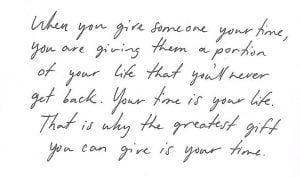 When you give someone your time,
you are giving them a portion
of your life that you'll never
get back. Your time is your life.
That is why the greatest gift
you can give is your time.